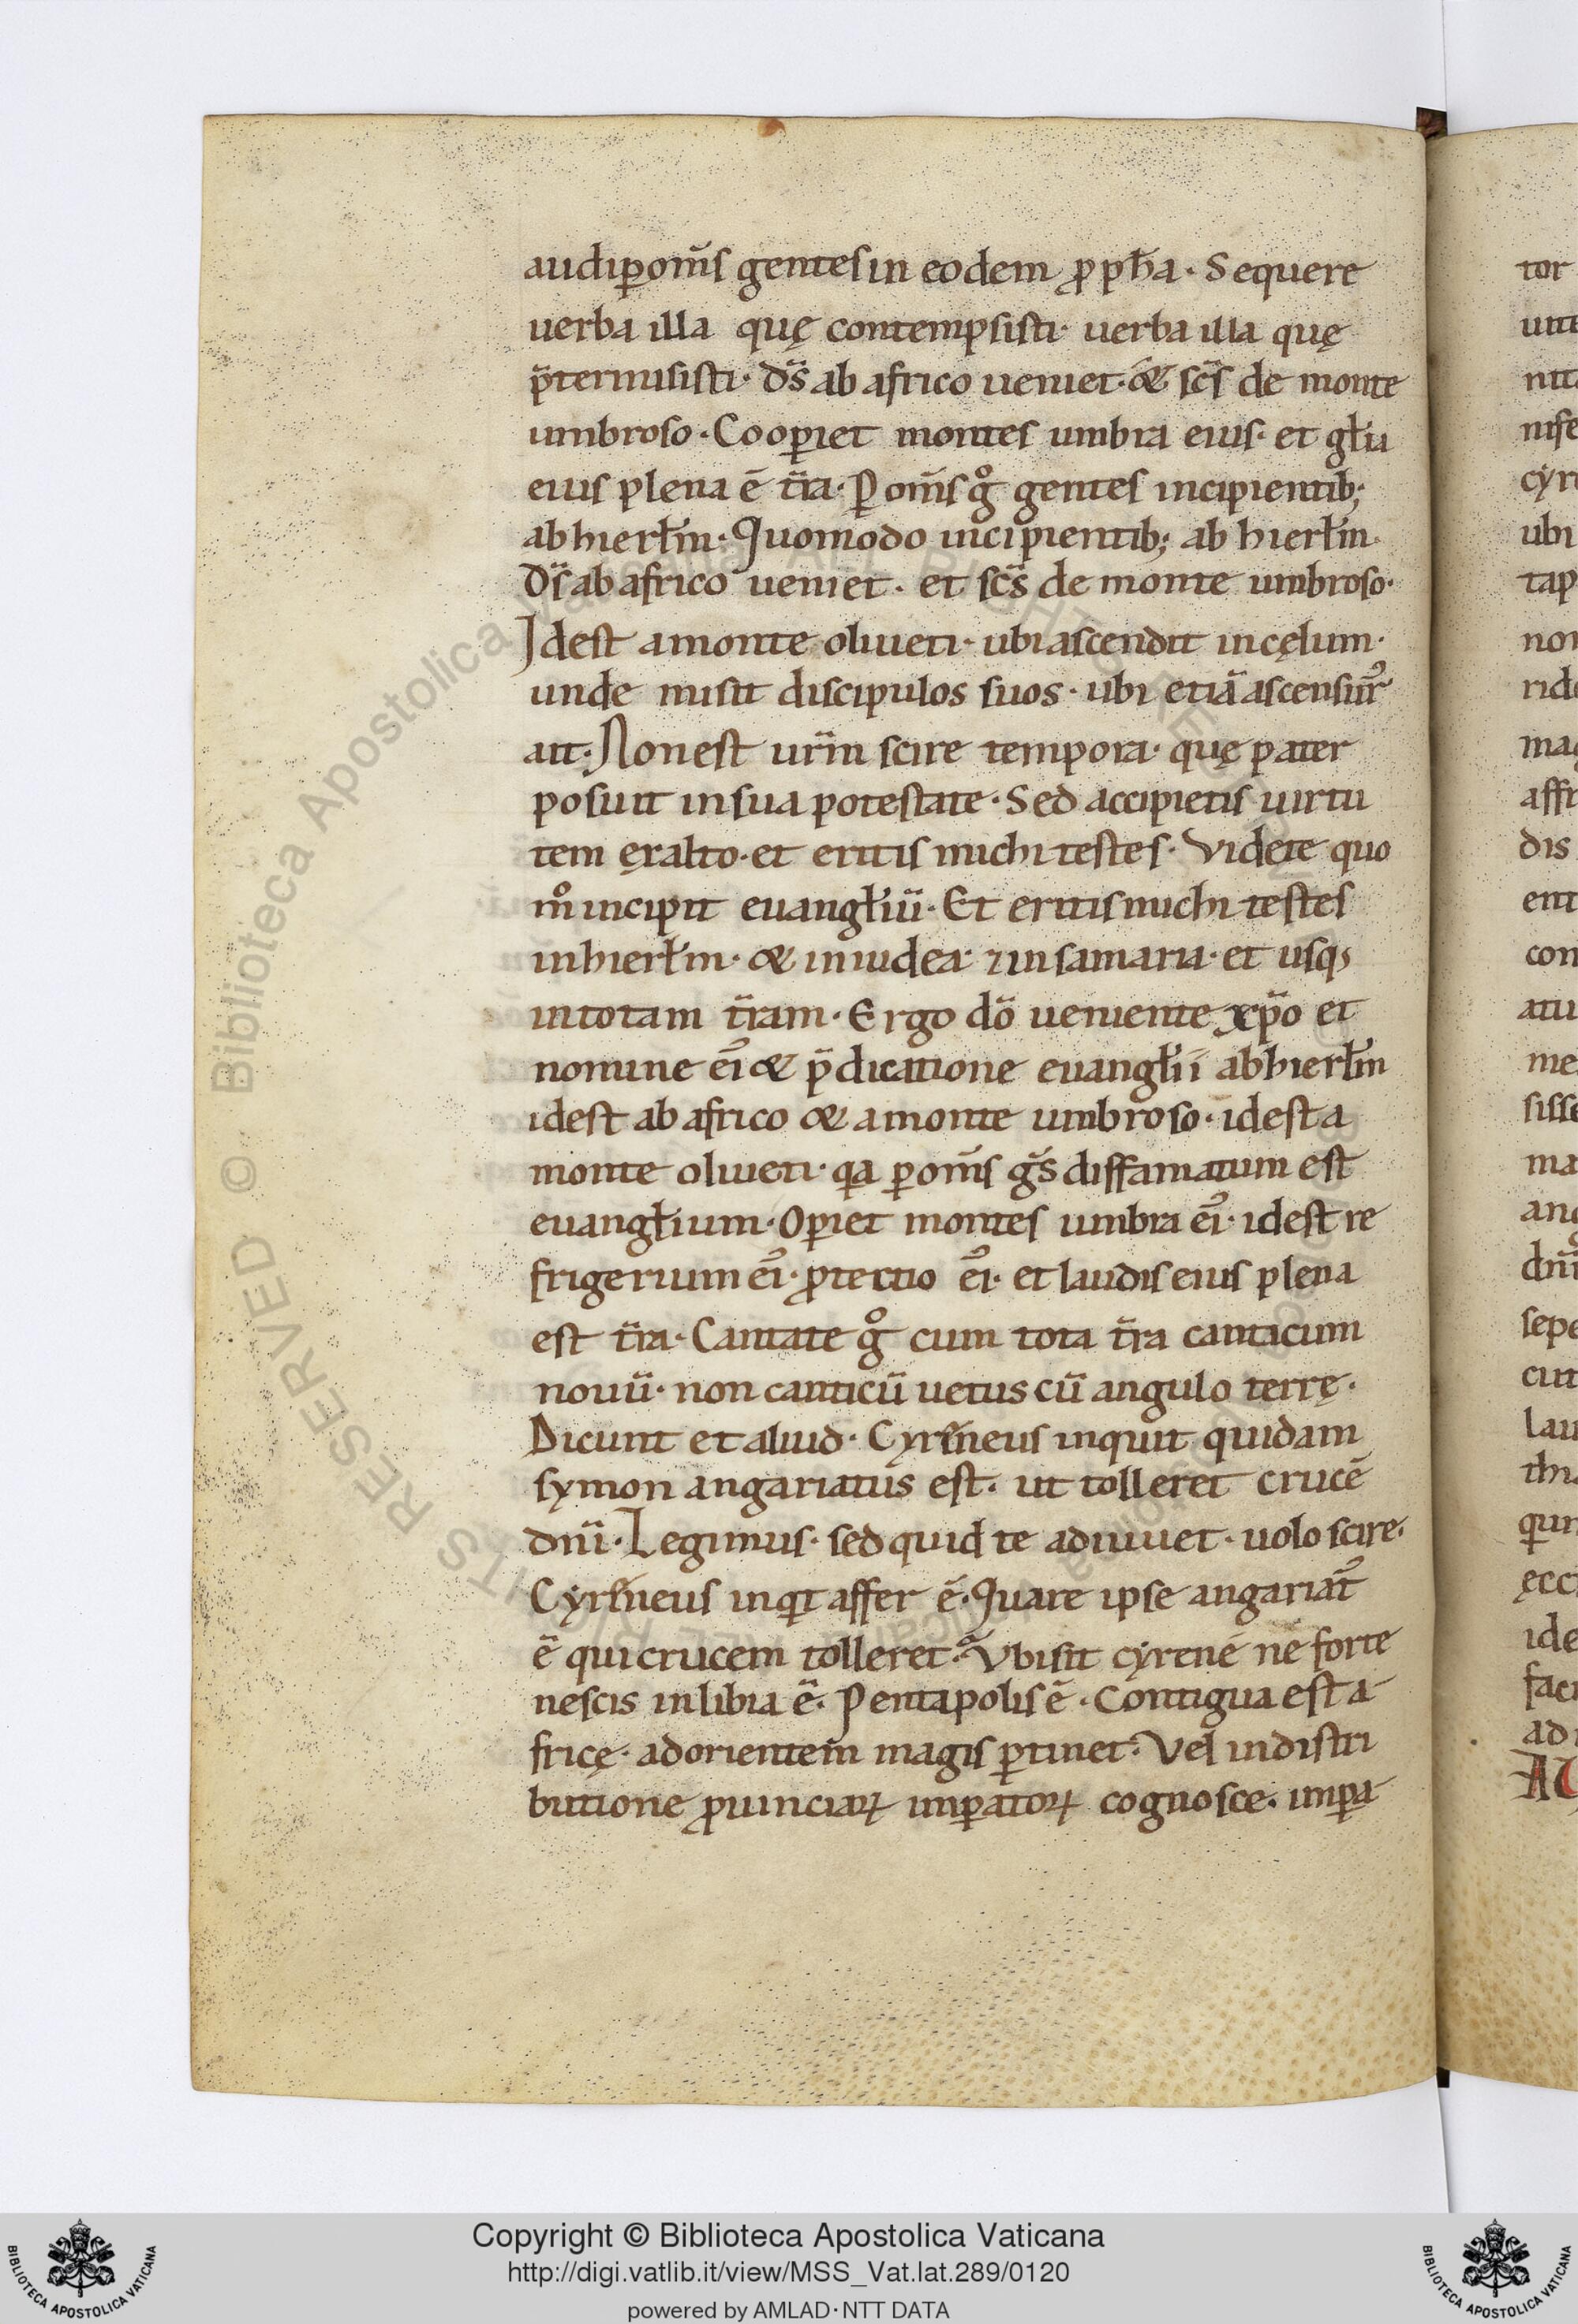 audi ꝑ om̄s gentes in eodem ꝓpħa. Sequere
uerba illa quę contempsisti. uerba illa quę
p̄termisisti. Ds̄ ab africo ueniet. & sc̄s de monte
umbroso. Cooꝑiet montes umbra eius. et gł̄ia
eius plena ē tr̄a. Ꝑ om̄s gͦ gentes incipientib;
ab hierłm. Quomodo incipientib; ab hierłm.
Ds̄ ab africo ueniet. et sc̄s de monte umbroso.
Idest a monte oliueti. ubi ascendit in cęlum.
unde misit discipulos suos. ubi etiā ascensur᷒
ait. Non est ur̄m scire tempora. quę pater
posuit in sua potestate. Sed accipietis uirtu
tem ex alto. et eritis michi testes. Videte quo
mͦ incipit euangłiū. Et eritis michi testes
in hierłm. & in iudea. ⁊ in samaria. et usqꝫ
in totam tr̄am. Ergo dō ueniente xp̄o et
nomine ei᷒ & p̄dicatione euangłii ab hierłm
idest ab africo & a monte umbroso. idest a
monte oliueti. qͣa ꝑ om̄s gs̄ diffamatum est
euangłium. Oꝑiet montes umbra ei᷒. idest re
frigerium ei᷒. ꝓtectio ei᷒. et laudis eius plena
est tr̄a. Cantate gͦ cum tota tr̄a canticum
nouū. non canticū uetus cū angulo terrę.
Dicunt et aliud. Cyreneus inquit quidam
symon angariatus est. ut tolleret crucē
dn̄i. Legimus. sed quid te adiuuet. uolo scire.
Cyreneus inqͥt affer ē. Quare ipse angariat᷒
ē qui crucem tolleret. Vbi sit cyrene ne forte
nescis in libia ē. Pentapolis ē. Contigua est a
fricę. ad orientem magis ꝑtinet. Vel in distri
butione ꝓuinciaꝝ imꝑatoꝝ cognosce. imꝑa
tor
ubi
tap
non
mag
dis
con
me
ma
dn̄i
sepe
lau
ide
ad
Copyright © Biblioteca Apostolica Vaticana
http://digi.vatlib.it/view/MSS_Vat.lat.289/0120
powered by AMLAD·NTT DATA
BIBLIOTECA APOSTOLICA VATICANA
BIBLIOTECA APOSTOLICA VATICANA